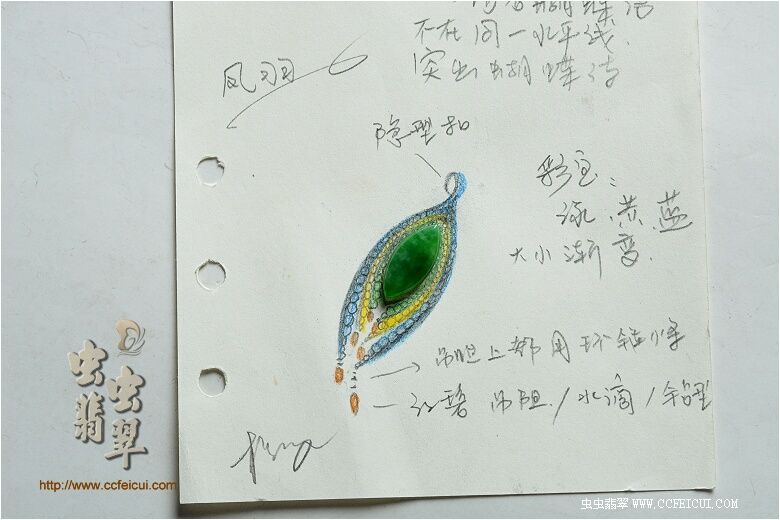 不在同一水平线.
突出蝴蝶结
凤羽
隐型扣
彩宝:
绿.黄.蓝
大小渐变.
吊胆上部用环链
红碧吊胆/水滴/
虫虫翡翠
http://www.ccfeicui.com
虫虫翡翠 WWW.CCFEICUI.COM